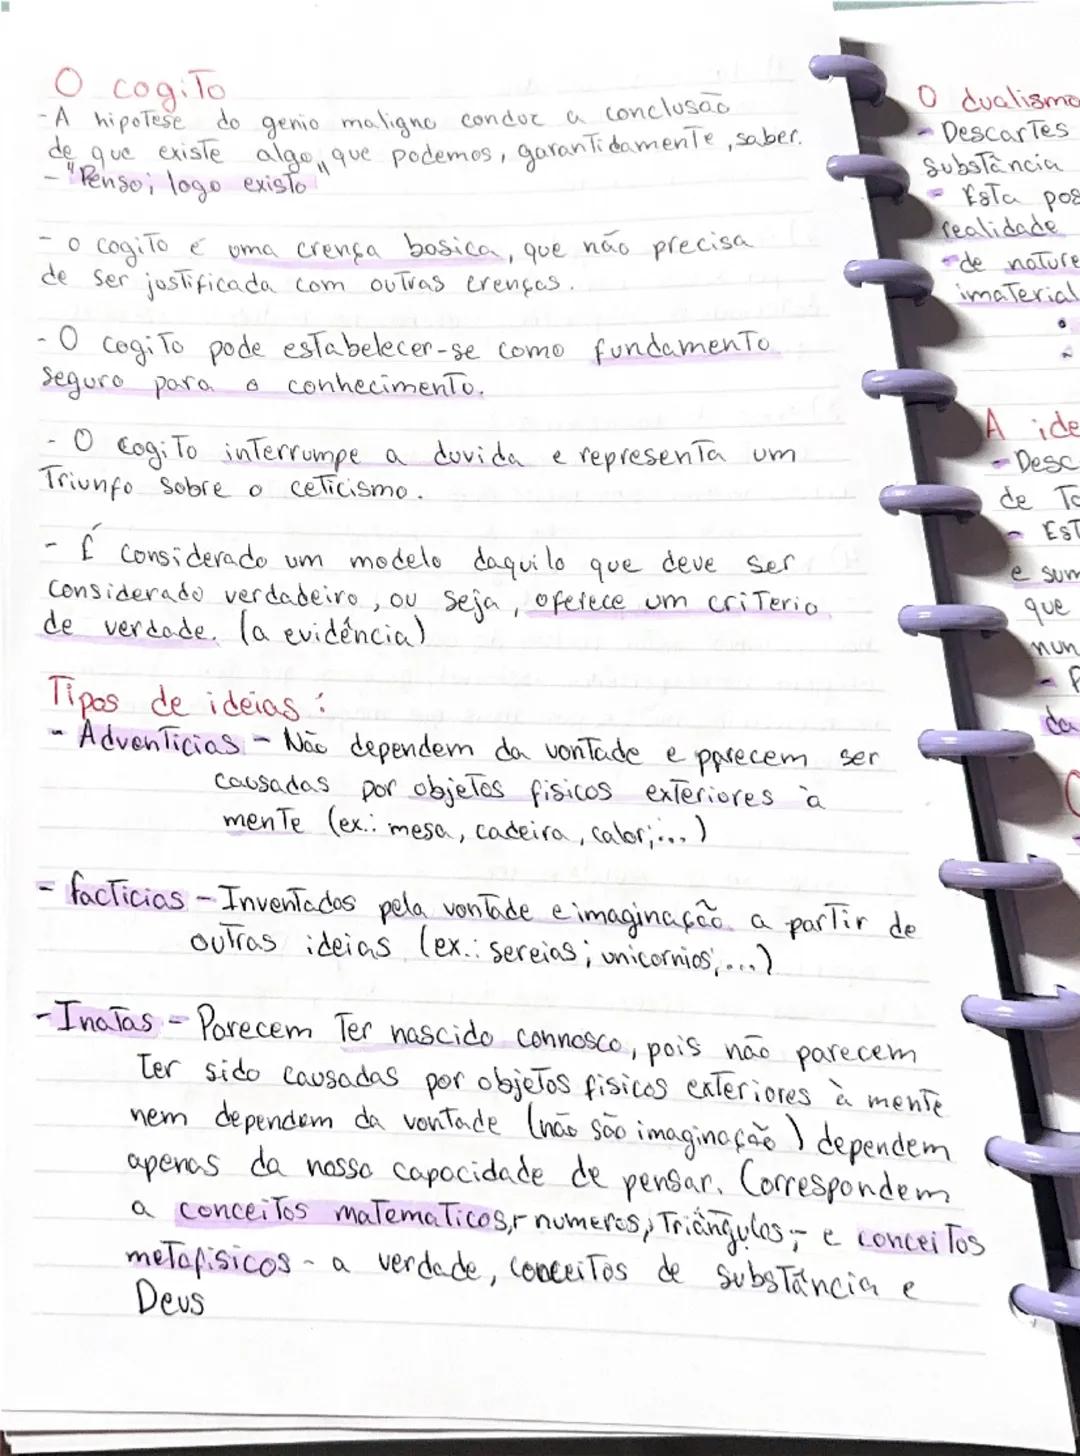 O cogito
- A hipotese do genio maligno conduz a conclusão
de que existe algo, que podemos, garantidamente, saber.
- "Penso; logo existo"
- o cogito é uma crença basica, que não precisa
de ser justificada com outras crenças.
- O cogito pode estabelecer-se como fundamento
seguro para o conhecimento.
- O cogito interrompe a duvida e representa um
Triunfo sobre o ceticismo.
- É considerado um modelo daquilo que deve ser
considerado verdadeiro, ou seja, oferece um criterio
de verdade. (a evidência)
Tipos de ideias :
- Adventicias - Não dependem da vontade e parecem ser
causadas por objetos fisicos exteriores à
mente (ex.: mesa, cadeira, calor;...)
- facticias - Inventados pela vontade e imaginação a partir de
outras ideias (ex.: sereias; unicornios;...)
- Inatas - Parecem Ter nascido connosco, pois não parecem
ter sido causadas por objetos fisicos exteriores à mente
nem dependem da vontade (não são imaginação) dependem
apenas da nossa capacidade de pensar. Correspondem
a conceitos matematicos,- numeros, Triângulos;- e conceitos
metafisicos - a verdade, conceitos de substância e
Deus
O dualismo
- Descartes
substância
- Esta pos
realidade
- de nature
imaterial
A ide
- Desc
de To
- Est
e sum
que
nun
- P
da